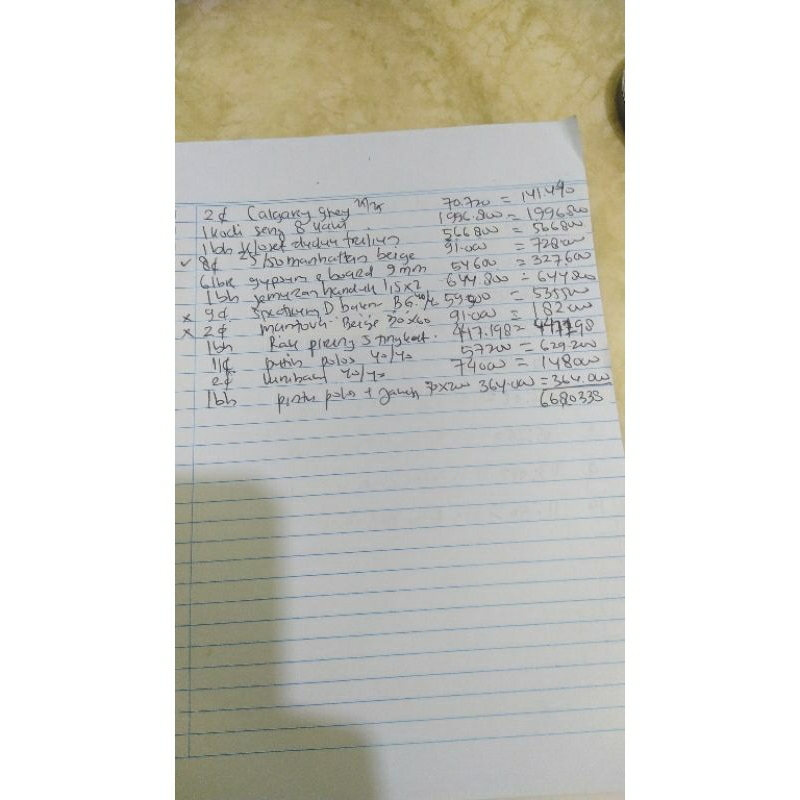 2¢ Calgary grey 25/25 70.720 = 141490
1 kodi seng 8 kaki 1996.800 = 1996800
1bh kloset duduk trilliun 566800 = 566800
✓ 8¢ 25/50 manhattan beige 91.000 = 728000
6lbr gypsum board 9mm 54600 = 327600
1bh jemuran handuk 1,15x2 644.800 = 644800
x 9¢ D 59500 = 535500
x 2¢ Beige 30x60 91.000 = 182000
1bh Rak piring 3 tingkat. 417.198 =
11¢ putih polos 40/40 57200 = 629200
2¢ 40/40 74000 = 148000
1bh pintu polos + 70x200 364.000 = 364.000
6680338